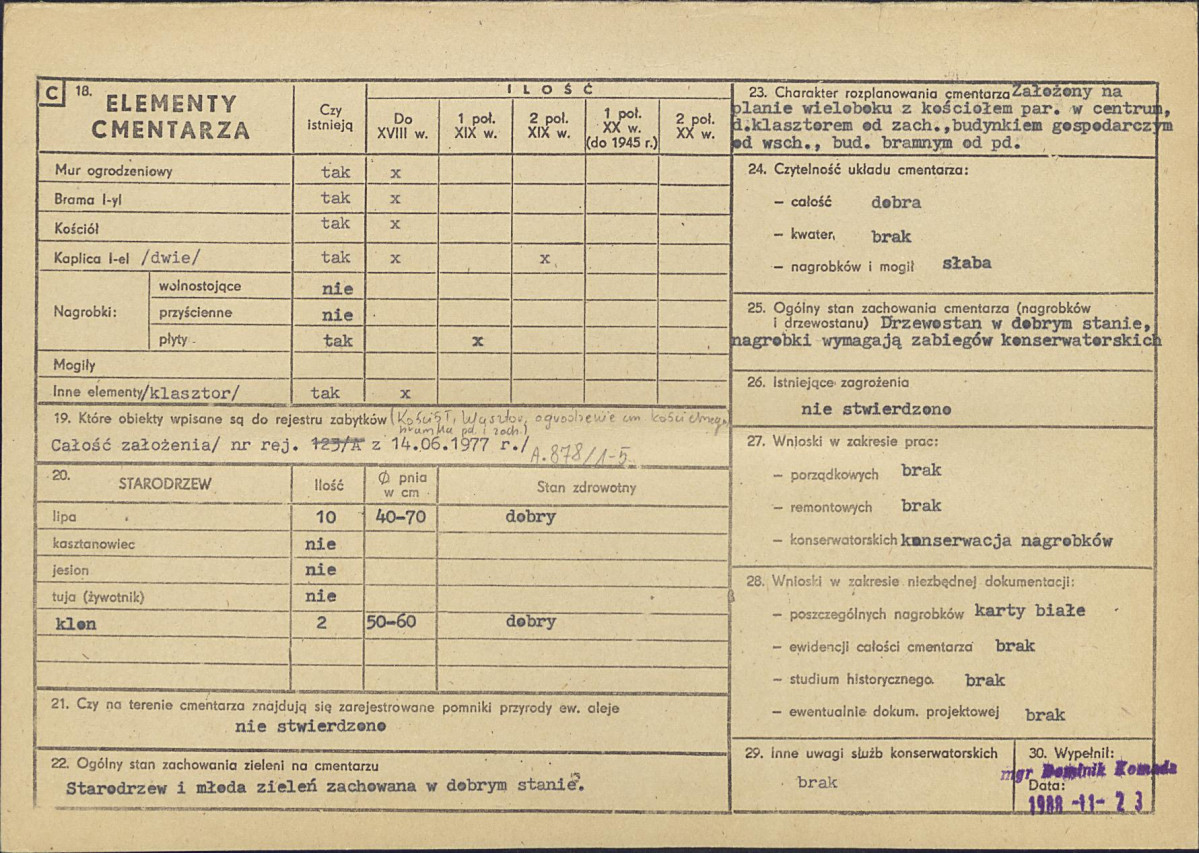 C 18. ELEMENTY CMENTARZA
Czy istnieją
ILOŚĆ
Do XVIII w.
1 poł. XIX w.
2 poł. XIX w.
1 poł. XX w. (do 1945 r.)
2 poł. XX w.
Mur ogrodzeniowy tak x
Brama I-yl tak x
Kościół tak x
Kaplica I-el /dwie/ tak x x
Nagrobki:
wolnostojące nie
przyścienne nie
płyty tak x
Mogiły
Inne elementy/klasztor/ tak x
19. Które obiekty wpisane są do rejestru zabytków (Kościół, klasztor, ogrodzenie cm kościelnego
bramka pd. i zach.)
Całość założenia/ nr rej. 123/A z 14.06.1977 r./ A.878/1-5
20. STARODRZEW Ilość Ø pnia w cm Stan zdrowotny
lipa 10 40-70 dobry
kasztanowiec nie
jesion nie
tuja (żywotnik) nie
klon 2 50-60 dobry
21. Czy na terenie cmentarza znajdują się zarejestrowane pomniki przyrody ew. aleje
nie stwierdzono
22. Ogólny stan zachowania zieleni na cmentarzu
Starodrzew i młoda zieleń zachowana w dobrym stanie.
23. Charakter rozplanowania cmentarza Założony na
planie wieloboku z kościołem par. w centrum,
d.klasztorem od zach.,budynkiem gospodarczym
od wsch., bud. bramnym od pd.
24. Czytelność układu cmentarza:
– całość dobra
– kwater, brak
– nagrobków i mogił słaba
25. Ogólny stan zachowania cmentarza (nagrobków
i drzewostanu) Drzewostan w dobrym stanie,
nagrobki wymagają zabiegów konserwatorskich
26. Istniejące zagrożenia
nie stwierdzono
27. Wnioski w zakresie prac:
– porządkowych brak
– remontowych brak
– konserwatorskich konserwacja nagrobków
28. Wnioski w zakresie niezbędnej dokumentacji:
– poszczególnych nagrobków karty białe
– ewidencji całości cmentarza brak
– studium historycznego. brak
– ewentualnie dokum. projektowej brak
29. Inne uwagi służb konserwatorskich
brak
30. Wypełnił:
mgr Dominik Komada
Data:
1988 -11- 23